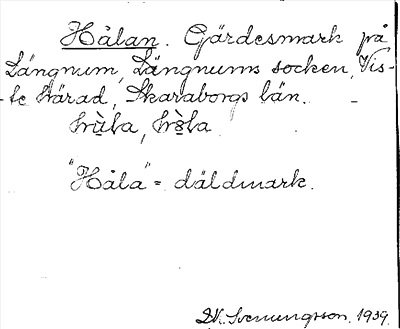 Hålan. Gärdesmark på
Längnum, Längnums socken, Vis-
te härad, Skaraborgs län.
"Håla" = däldmark.
Svenungsson. 1939.